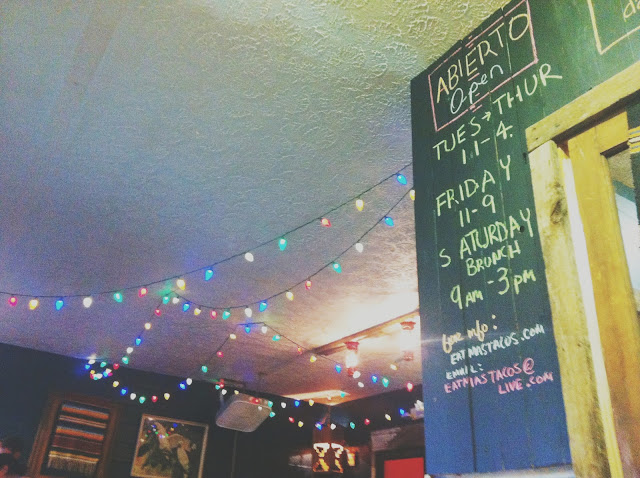 ABIERTO
Open
TUES→THUR
11-4
FRIDAY
11-9
SATURDAY
BRUNCH
9AM-3PM
info:
EATMASTACOS.COM
EMAIL:
EATMASTACOS@
LIVE.COM